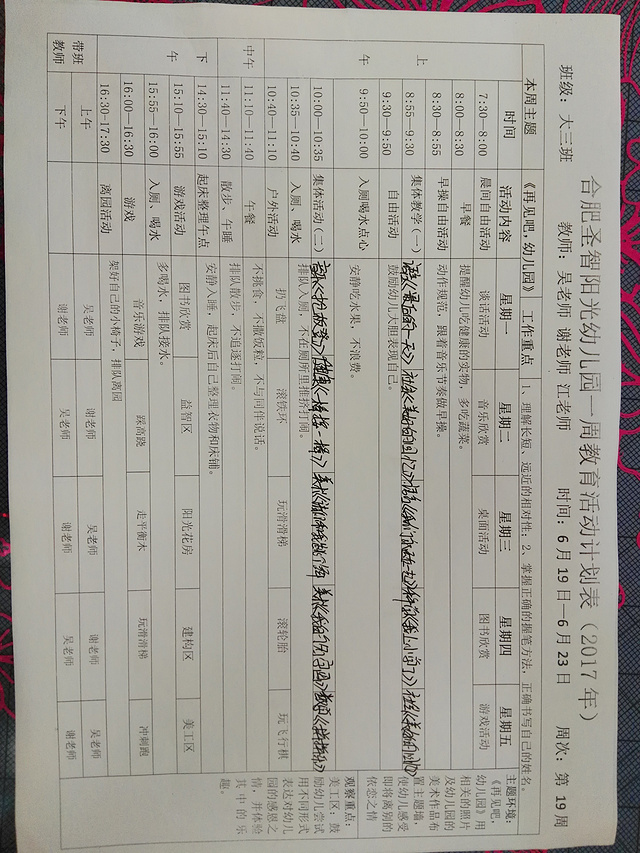 合肥圣智阳光幼儿园一周教育活动计划表（2017年）
班级：大三班 教师：吴老师 谢老师 江老师 时间：6月19日—6月23日 周次：第19周
本周主题 《再见吧，幼儿园》 工作重点 1、理解长短、远近的相对性；2、掌握正确的握笔方法，正确书写自己的姓名。
时间 活动内容 星期一 星期二 星期三 星期四 星期五
上午
7:30—8:00 晨间自由活动 谈话活动 音乐欣赏 桌面活动 图书欣赏 游戏活动
8:00—8:30 早餐 提醒幼儿吃健康的实物，多吃蔬菜。
8:30—8:55 早操自由活动 动作规范，跟着音乐节奏做早操。
8:55—9:30 集体教学（一） 语言《最后的一天》
9:30—9:50 自由活动 鼓励幼儿大胆表现自己。
9:50—10:00 入厕喝水点心 安静吃水果，不浪费。
10:00—10:35 集体活动（二）
10:35—10:40 入厕、喝水 排队入厕，不在厕所里推挤打闹。
10:40—11:10 户外活动 扔飞盘 滚铁环 玩滑滑梯 滚轮胎 玩飞行棋
中午
11:10—11:40 午餐 不挑食，不撒饭粒，不与同伴说话。
11:40—14:30 散步、午睡 排队散步，不追逐打闹。
下午
14:30—15:10 起床整理午点 安静入睡，起床后自己整理衣物和床铺。
15:10—15:55 游戏活动 图书欣赏 益智区 阳光花房 建构区 美工区
15:55—16:00 入厕、喝水 多喝水，排队接水。
16:00—16:30 游戏 音乐游戏 踩高跷 走平衡木 玩滑滑梯 冲刺跑
16:30—17:30 离园活动 架好自己的小椅子，排队离园
带班教师
上午 吴老师 谢老师 吴老师 谢老师 吴老师
下午 谢老师 吴老师 谢老师 吴老师 谢老师
主题环境：
《再见吧，
幼儿园》用
相关的照片
及幼儿园的
美术作品布
置主题墙，
使幼儿感受
即将离别的
依恋之情
观察重点：
美工区：鼓
励幼儿尝试
用不同形式
表达对幼儿
园的感恩之
情，并体验
其中的乐
趣。